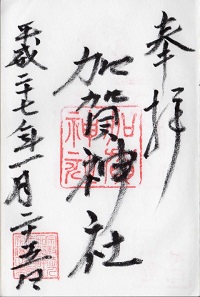 奉拝
加賀神社
平成二十七年一月二十五日